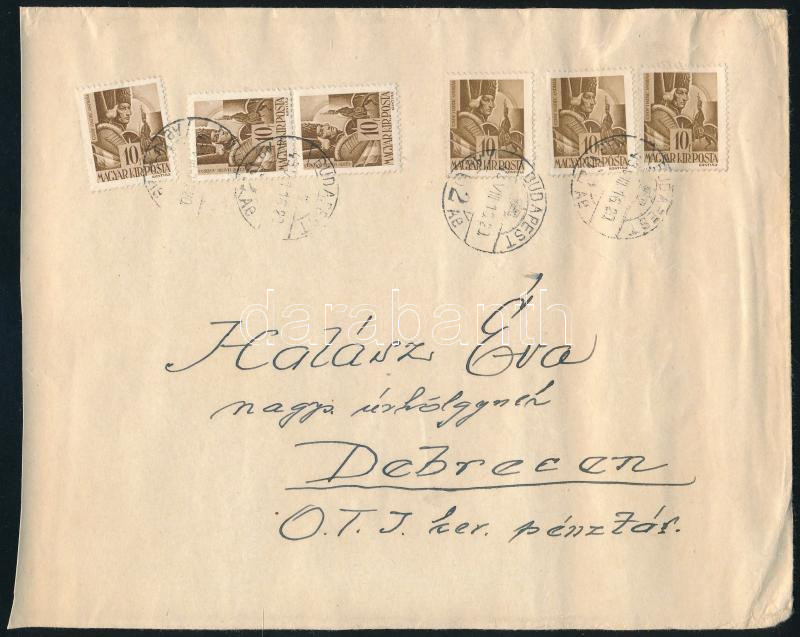 10
MAGYAR KIR. POSTA
10
MAGYAR KIR. POSTA
10
MAGYAR KIR. POSTA
10
MAGYAR KIR. POSTA
10
MAGYAR KIR. POSTA
10
MAGYAR KIR. POSTA
BUDAPEST
BUDAPEST
2
BUDAPEST
darabanth
Halász Éva
nagys. úrhölgynek
Debrecen
O.T.I. ker. pénztár.